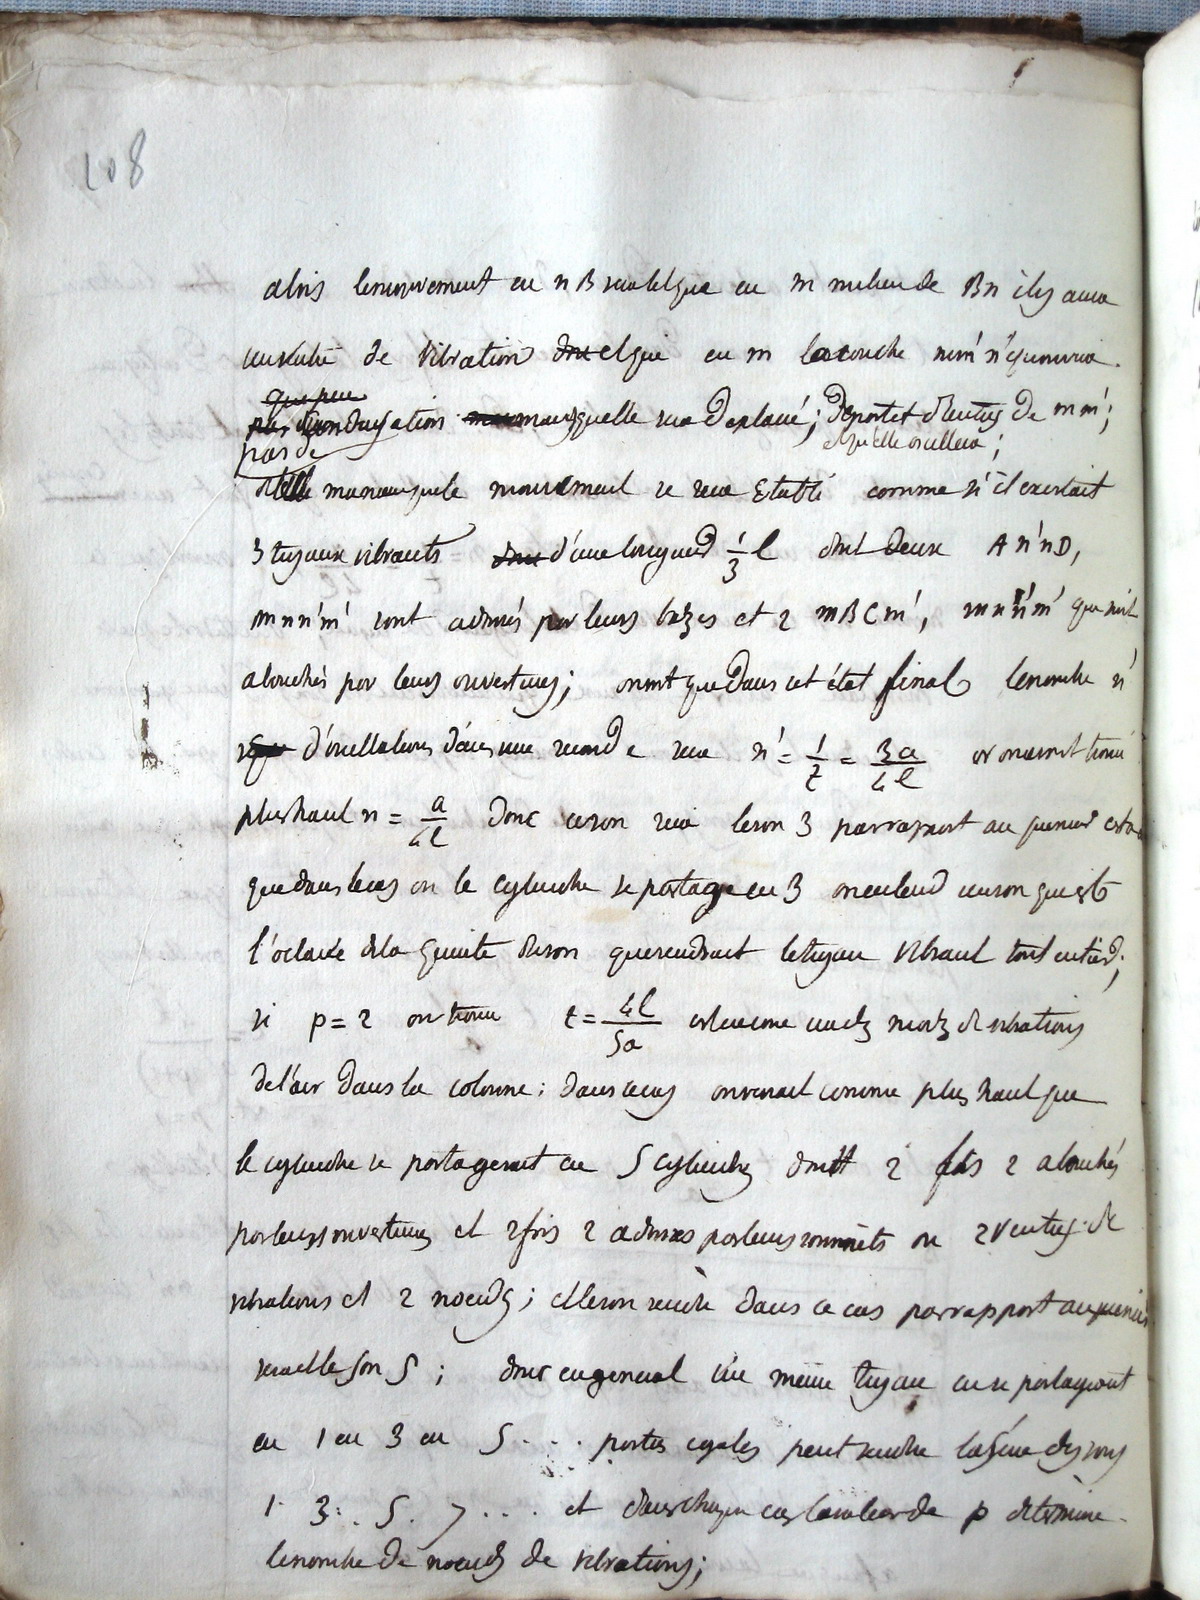 108
alors le mouvement en nB sera tel que en m milieu de Bn il y aura
un ventre de vibration et que en m la couche mm' n'éprouvera
que peu
pas de condensation mais qu'elle sera déplacée; de part et d'autre de mm';
et qu'elle oscillera;
de manière que le mouvement se sera établi comme s'il existait
3 tuyaux vibrants d'une longueur 1/3 l dont deux A n' n D,
m n n' m' sont adossés par leurs bazes et 2 m B C m', m n n' m' qui sont
abouchés par leurs ouvertures; on voit que dans cet état final le nombre n'
d'oscillations dans une seconde sera n' = 1/t = 3a/4l or on avait trouvé
plus haut n = a/4l donc ce son sera le son 3 par rapport au premier
que dans le cas où le cylindre se partage en 3 on entend un son qui est
l'octave de la quinte du son que rendrait le tuyau vibrant tout entier;
si p = 2 on trouve t = 4l/5a est encore un des modes de vibrations
de l'air dans la colonne: dans ce cas on verrait comme plus haut que
le cylindre se partagerait en 5 cylindres dont 2 fois 2 abouchés
par leurs ouvertures et 2 fois 2 adossés par leurs sommets ou 2 ventres de
vibrations et 2 noeuds; et le son rendu dans ce cas par rapport au premier
sera le son 5; donc en general un même tuyau en se partageant
en 1 en 3 en 5 . . . parties egales peut rendre la série des sons
1. 3. 5. 7 . . . et dans chaque cas la valeur de p determine
le nombre de noeuds de vibrations;